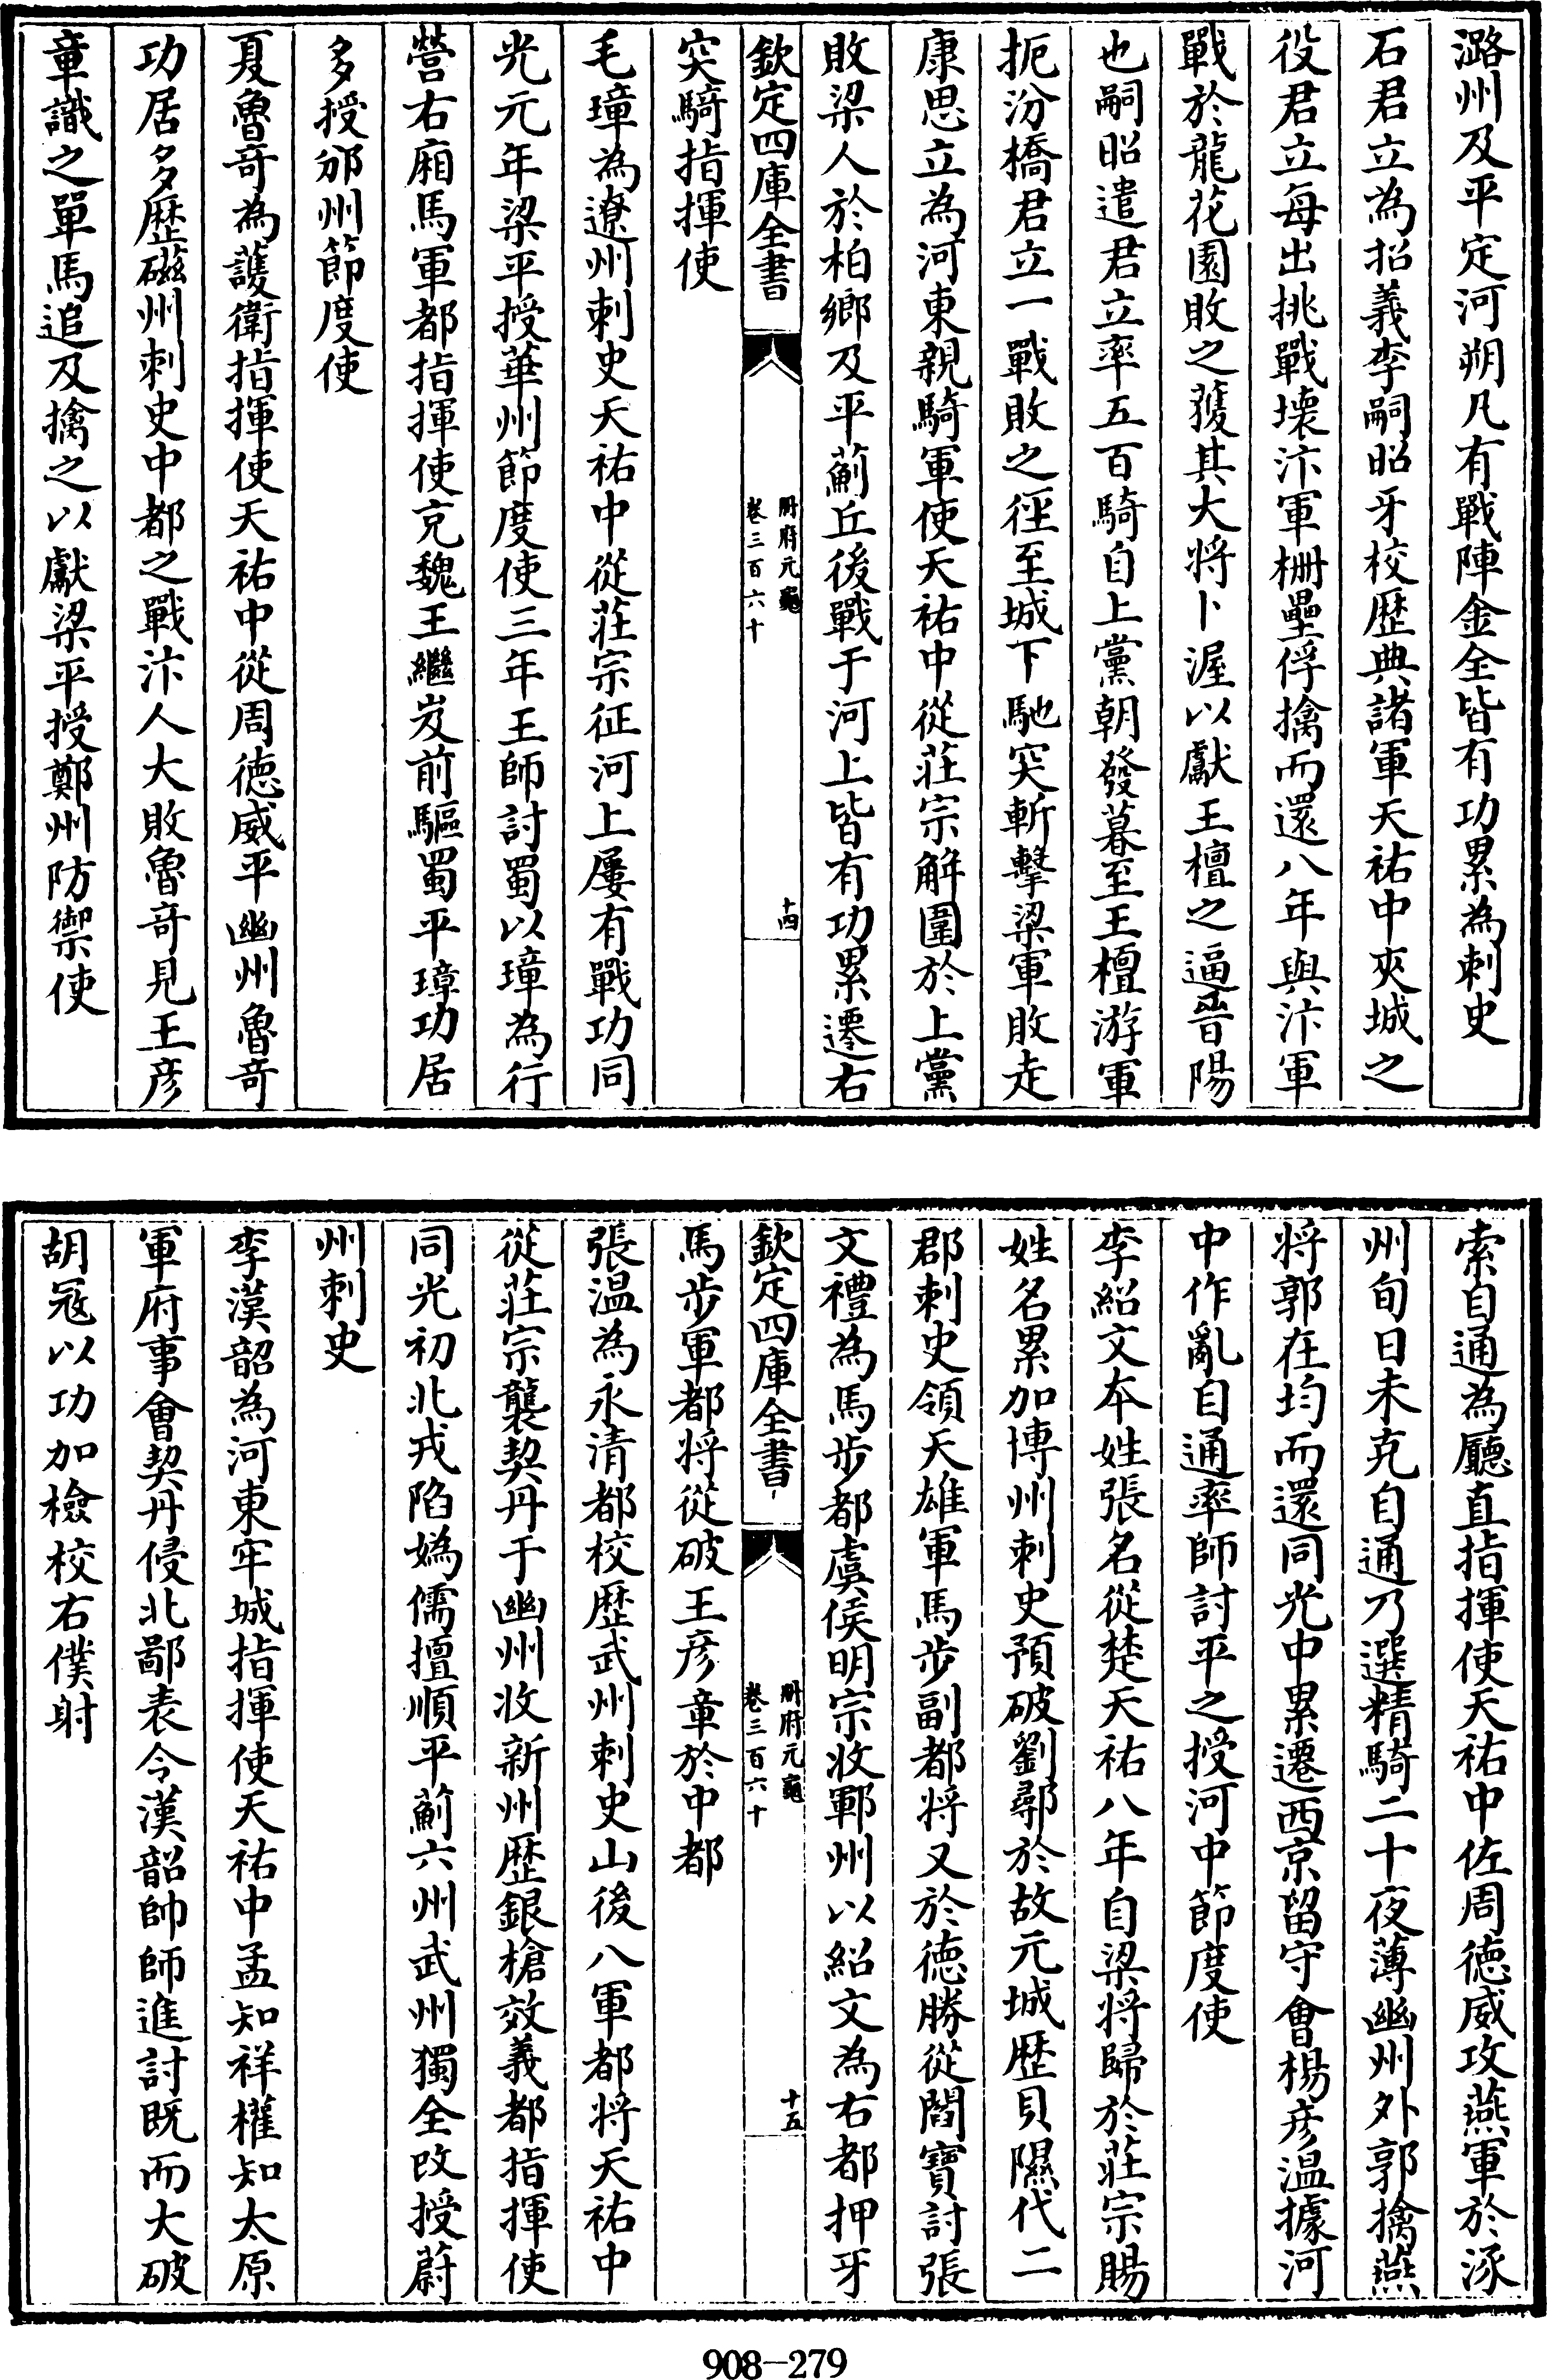 潞州及平定河朔凡有戰陣金全皆有功累為刺史
石君立為招義李嗣昭牙校歴典諸軍天祐中夾城之
役君立每出挑戰壊汴軍栅壘俘擒而還八年與汴軍
戰於龍花園敗之獲其大将卜渥以獻王檀之逼晉陽
也嗣昭遣君立率五百騎自上黨朝發暮至王檀游軍
扼汾橋君立一戰敗之徑至城下馳突斬擊梁軍敗走
康思立為河東親騎軍使天祐中從莊宗解圍於上黨
敗梁人於柏鄉及平薊丘後戰于河上皆有功累遷右
欽定四庫全書
冊府元龜
卷三百六十
十四
突騎指揮使
毛璋為遼州刺史天祐中從莊宗征河上屢有戰功同
光元年梁平授華州節度使三年王師討蜀以璋為行
營右廂馬軍都指揮使克魏王繼岌前驅蜀平璋功居
多授邠州節度使
夏魯奇為護衛指揮使天祐中從周徳威平幽州魯奇
功居多歴磁州刺史中都之戰汴人大敗魯奇見王彦
章識之單馬追及擒之以獻梁平授鄭州防禦使
索自通為廳直指揮使天祐中佐周徳威攻燕軍於涿
州旬日未克自通乃選精騎二十夜薄幽州外郭擒燕
将郭在均而還同光中累遷西京留守會楊彦温據河
中作亂自通率師討平之授河中節度使
李紹文本姓張名從楚天祐八年自梁将歸於莊宗賜
姓名累加博州刺史預破劉鄩於故元城歴貝隰代二
郡刺史領天雄軍馬步副都将又於徳勝從閻寶討張
文禮為馬步都虞候明宗收鄆州以紹文為右都押牙
欽定四庫全書
冊府元龜
卷三百六十
十五
馬步軍都将從破王彦章於中都
張温為永清都校歴武州刺史山後八軍都将天祐中
從莊宗襲契丹于幽州收新州歴銀槍效義都指揮使
同光初北戎陷媯儒擅順平薊六州武州獨全改授蔚
州刺史
李漢韶為河東牢城指揮使天祐中孟知祥權知太原
軍府事會契丹侵北鄙表令漢韶帥師進討既而大破
胡冦以功加檢校右僕射
908—279